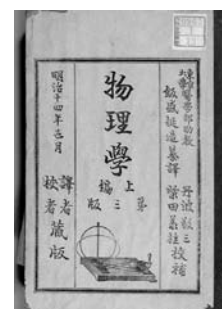 醫學部助教
飯盛挺造纂譯
丹波敬三
柴田承桂校補
物理學
上編
第三版
明治十四年五月
譯者
校者
藏版